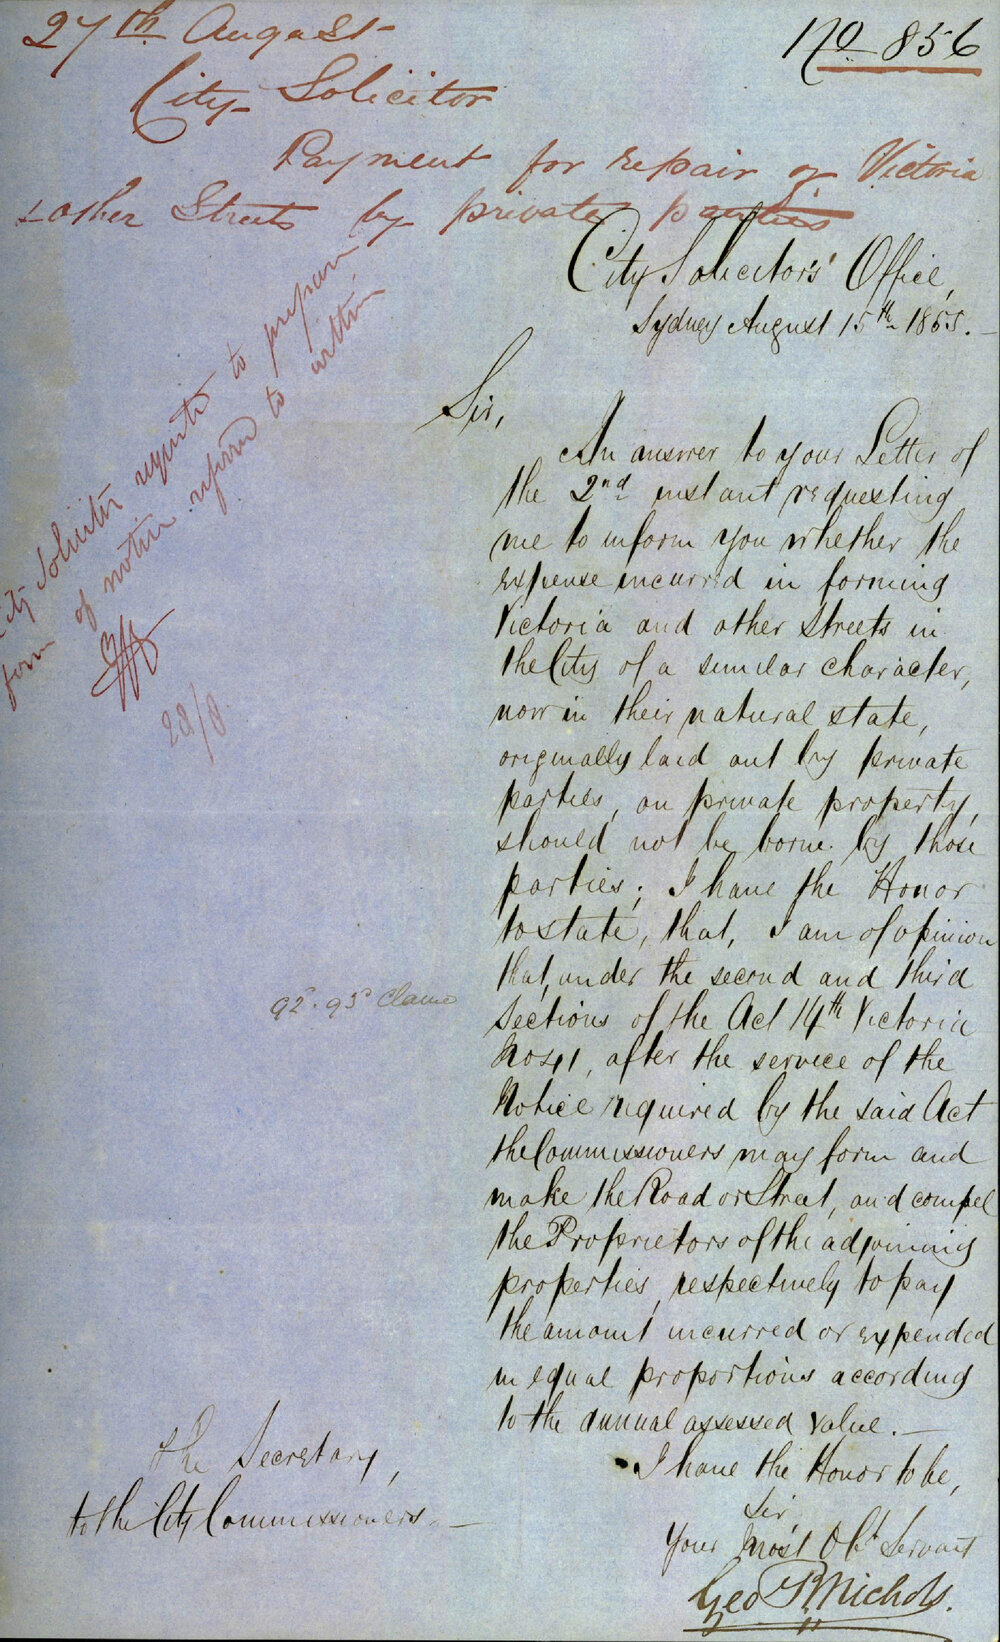 27th August
No 856
City Solicitor
Payment for repair of Victoria
& other Streets by private parties
City Solicitor requested to prepare
form of notice referred to within
28/8
City Solicitors' Office,
Sydney August 15th 1855.
Sir,
In answer to your Letter of
the 2nd instant requesting
me to inform you whether the
expense incurred in forming
Victoria and other Streets in
the City of a similar character,
now in their natural state,
originally laid out by private
parties, on private property,
should not be borne by those
parties; I have the Honor
to state, that, I am of opinion
that, under the second and third
Sections of the Act 14th Victoria
No 41, after the service of the
Notice required by the said Act
the Commissioners may form and
make the Road or Street, and compel
the Proprietors of the adjoining
properties, respectively to pay
the amount incurred or expended
in equal proportions according
to the annual assessed value.—
92. 95 Clause
I have the Honor to be,
Sir
Your Most Obt Servant
Geo R Nichols.
The Secretary,
to the City Commissioners.—